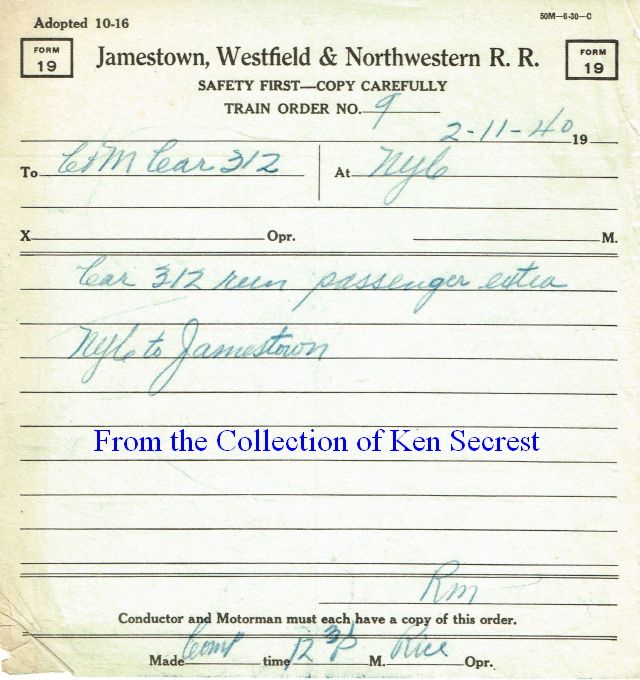 Adopted 10-16
50M—6-30—C
FORM 19
Jamestown, Westfield & Northwestern R. R.
FORM 19
SAFETY FIRST—COPY CAREFULLY
TRAIN ORDER NO. 9
2-11-40 19
To C+M Car 312 At NYC
X Opr. M.
Car 312 run passenger extra
NYC to Jamestown
From the Collection of Ken Secrest
RM
Conductor and Motorman must each have a copy of this order.
Made Com time 12 3 P M. Rice Opr.